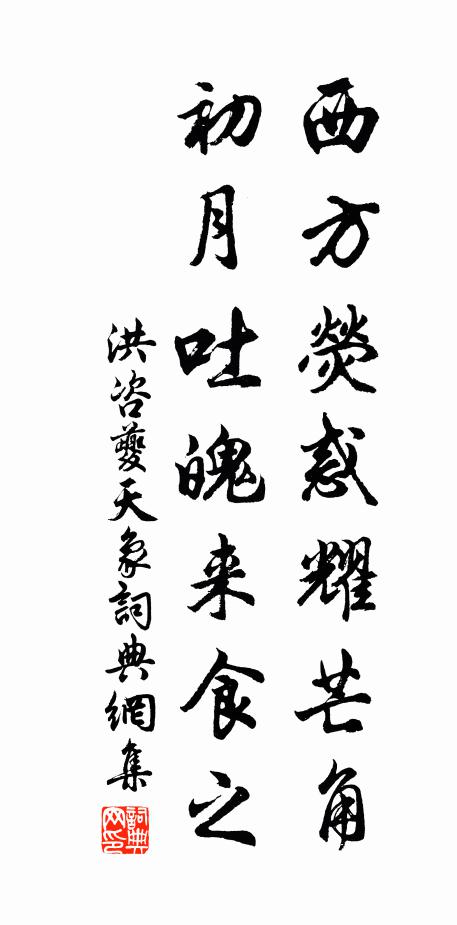 西方熒惑耀芒角
初月吐魄来食之
洪咨夔天象詞典網集
詞典网印